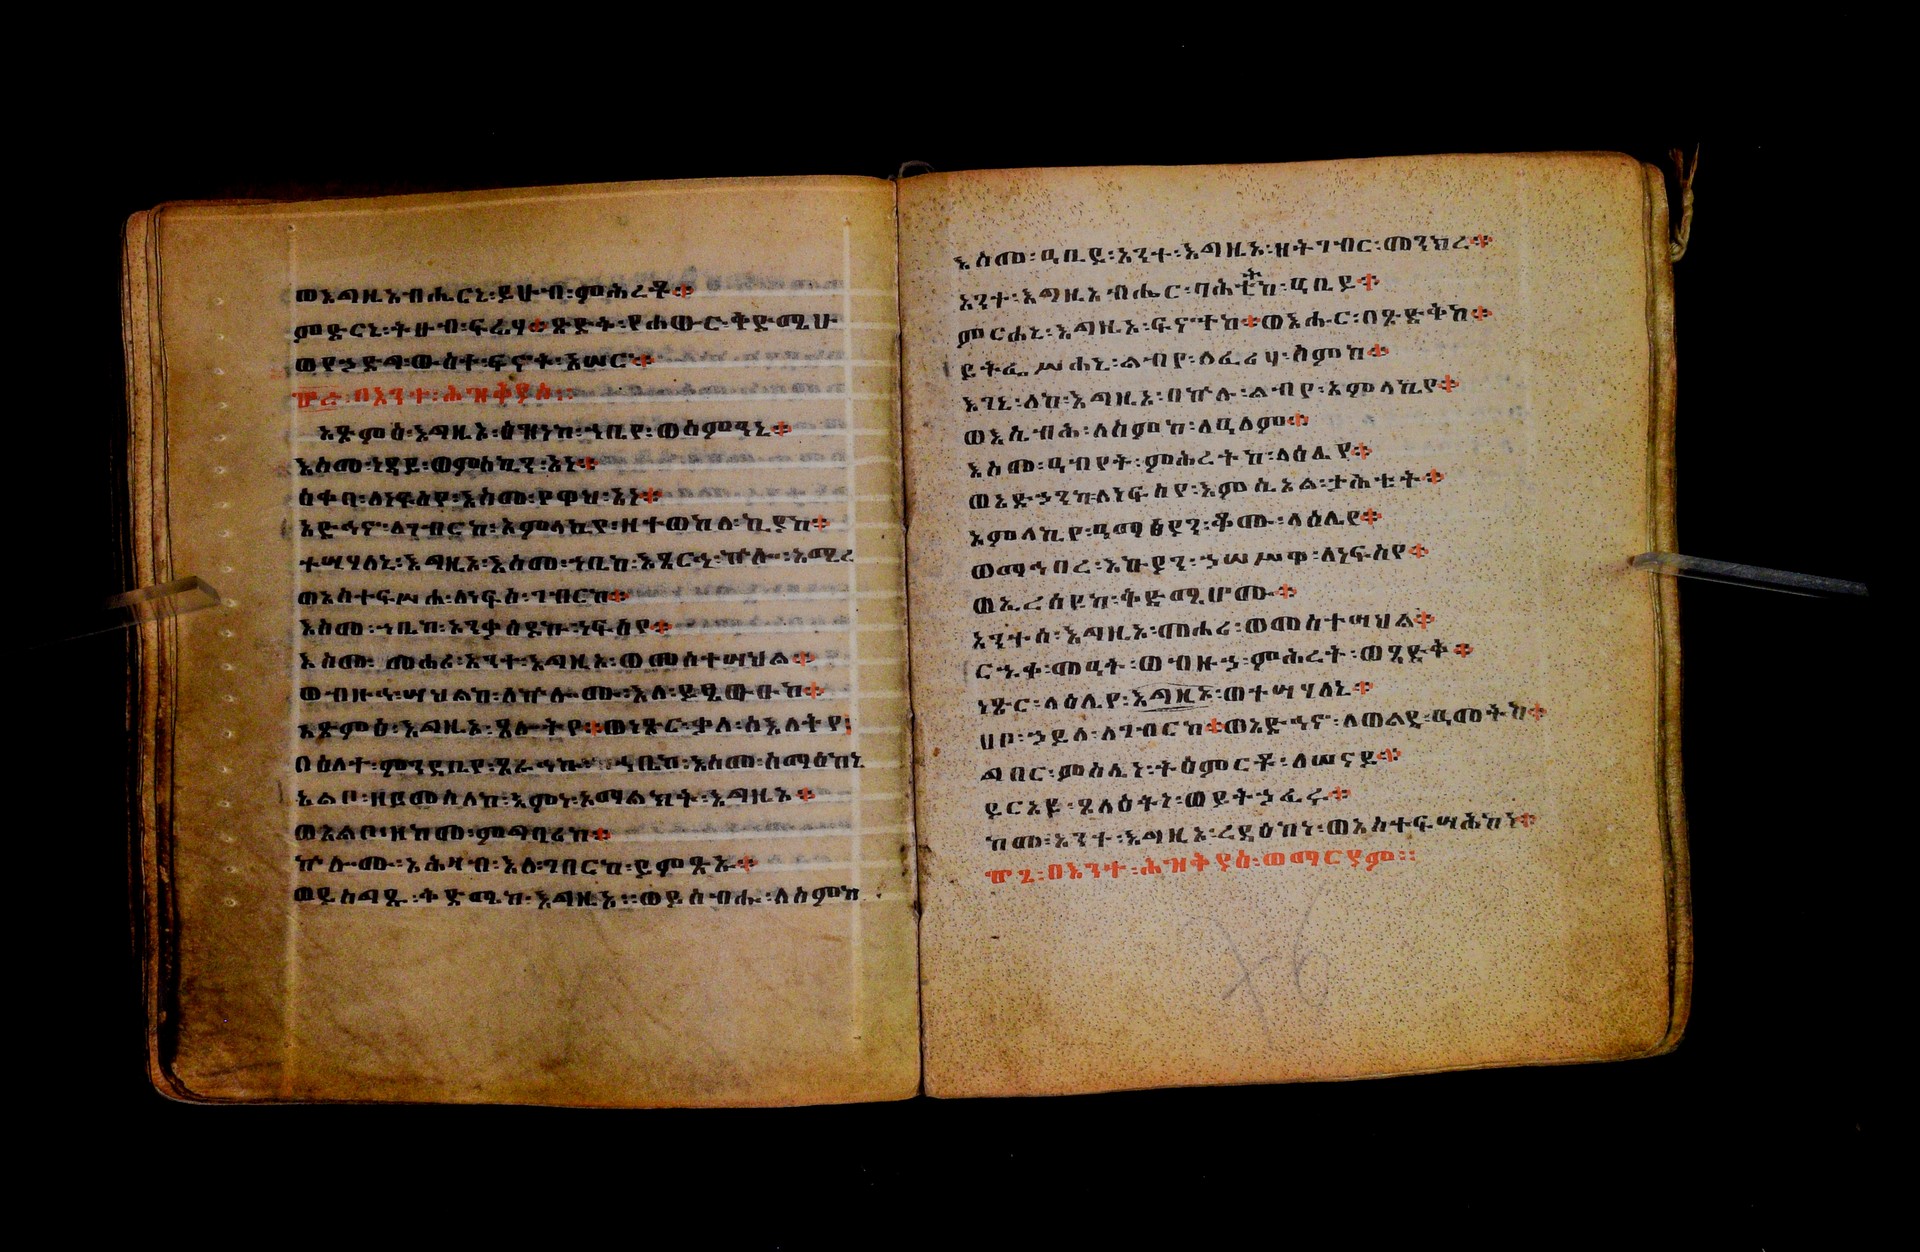 ወእግዚአብሔርኒ፡ይሁብ፡ምሕረቶ።
ምድርኒ፡ትሁብ፡ፍሬሃ።ጽድቅ፡የሐውር፡ቅድሜሁ
ወየኃድግ፡ውስተ፡ፍኖት፡አሠር።
፹፭፡በእንተ፡ሕዝቅያስ፡፡
አጽምዕ፡እግዚኦ፡ዕዝነከ፡ኀቤየ፡ወስምዓኒ።
እስመ፡ነዳይ፡ወምስኪን፡አነ።
ዕቀባ፡ለነፍስየ፡እስመ፡የዋህ፡አነ።
አድኅኖ፡ለገብርከ፡አምላኪየ፡ዘተወከለ፡ኪያከ።
ተሣሃለኒ፡እግዚኦ፡እስመ፡ኀቤከ፡እጼርኅ፡ኵሎ፡አሚረ
ወአስተፍሥሐ፡ለነፍሰ፡ገብርከ።
እስመ፡ኀቤከ፡አንቃዕደኩ፡ነፍስየ።
እስመ፡መሐሪ፡አንተ፡እግዚኦ፡ወመስተሣህል።
ወብዙኅ፡ሣህልከ፡ለኵሎሙ፡እለ፡ይጼውዑከ።
አጽምዕ፡እግዚኦ፡ጸሎትየ።ወነጽር፡ቃለ፡ስእለትየ፤
በዕለተ፡ምንዳቤየ፡ጸራኅኩ፡ኀቤከ፡እስመ፡ሰማዕከኒ
አልቦ፡ዘይመስለከ፡እምነ፡አማልክት፡እግዚኦ።
ወአልቦ፡ዘከመ፡ምግባሪከ።
ኵሎሙ፡አሕዛብ፡እለ፡ገበርከ፡ይምጽኡ።
ወይስግዱ፡ቅድሜከ፡እግዚኦ፡፡ወይሰብሑ፡ለስምከ
እስመ፡ዓቢይ፡አንተ፡እግዚኦ፡ዘትገብር፡መንክረ።
አንተ፡እግዚአብሔር፡ባሕቲትከ፡ዓቢይ።
ምርሐኒ፡እግዚኦ፡ፍኖተከ።ወእሑር፡በጽድቅከ።
ይትፌሥሐኒ፡ልብየ፡ለፈሪሃ፡ስምከ።
እገኒ፡ለከ፡እግዚኦ፡በኵሉ፡ልብየ፡አምላኪየ።
ወእሴብሕ፡ለስምከ፡ለዓለም።
እስመ፡ዓብየት፡ምሕረትከ፡ላዕሌየ።
ወአድኃንካ፡ለነፍስየ፡እምሲኦል፡ታሕቲት።
አምላኪየ፡ዓማፅያን፡ቆሙ፡ላዕሌየ።
ወማኅበረ፡እኩያን፡ኃሠሥዋ፡ለነፍስየ።
ወኢረሰዩከ፡ቅድሜሆሙ።
አንተሰ፡እግዚኦ፡መሐሪ፡ወመስተሣህል።
ርኁቀ፡መዓት፡ወብዙኃ፡ምሕረት፡ወጻድቅ።
ነጽር፡ላዕሌየ፡እግዚኦ፡ወተሣሃለኒ።
ሀቦ፡ኃይለ፡ለገብርከ።ወአድኅኖ፡ለወልደ፡ዓመትከ።
ግበር፡ምስሌነ፡ትዕምርተ፡ለሠናይ።
ይርአዩ፡ጸላዕትነ፡ወይትኃፈሩ።
ከመ፡አንተ፡እግዚኦ፡ረዳዕከነ፡ወአስተፍሣሕከነ።
፹፮፡በእንተ፡ሕዝቅያስ፡ወማርያም፡፡
76